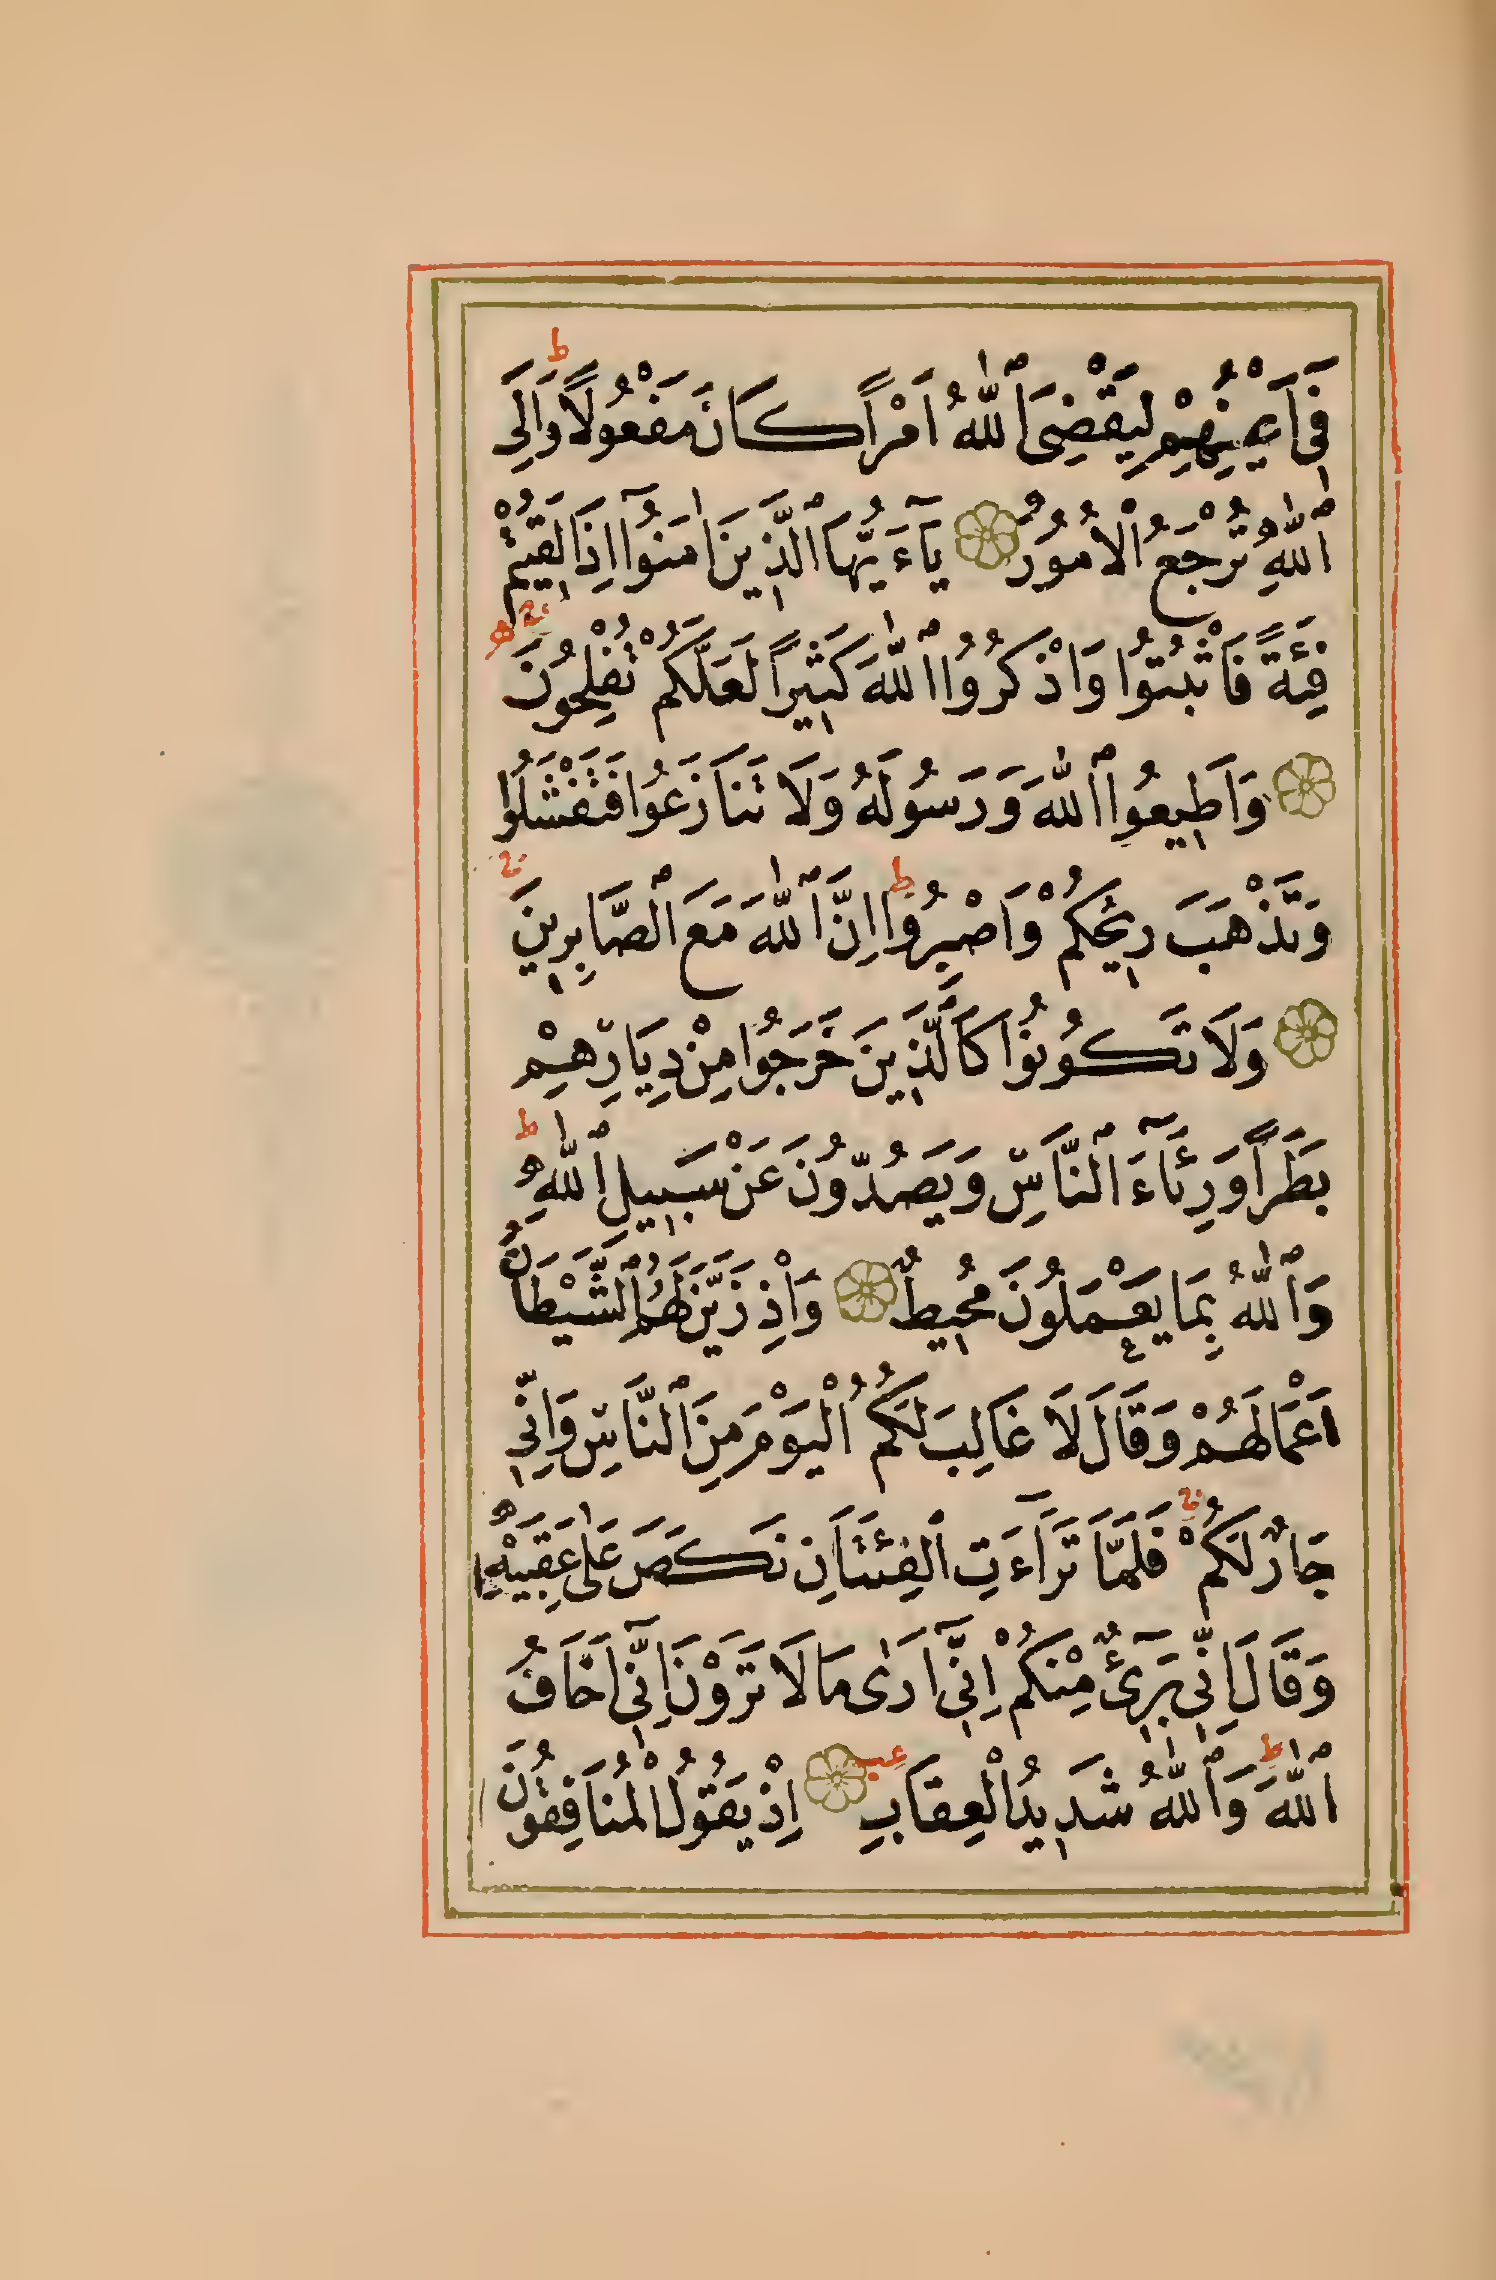 فِٓى اَعْيُنِهِمْ لِيَقْضِىَ ٱللّٰهُ اَمْرًا كَانَ مَفْعُولًا ۜ وَاِلَى
ٱللّٰهِ تُرْجَعُ ٱلْاُمُورُ يَآءَيُّهَا ٱلَّذِينَ اٰمَنُوٓا اِذَا لَقِيتُمْ
فِئَةً فَاثْبُتُوا وَاذْكُرُوا ٱللّٰهَ كَثِيرًا لَعَلَّكُمْ تُفْلِحُونَ
وَاَطِيعُوا ٱللّٰهَ وَرَسُولَهُ وَلَا تَنَازَعُوا فَتَفْشَلُوا
وَتَذْهَبَ رِيحُكُمْ وَاصْبِرُوا ط اِنَّ ٱللّٰهَ مَعَ ٱلصَّابِرِينَ
وَلَا تَكُونُوا كَٱلَّذِينَ خَرَجُوا مِنْ دِيَارِهِمْ
بَطَرًا وَرِئَآءَ ٱلنَّاسِ وَيَصُدُّونَ عَنْ سَبِيلِ ٱللّٰهِ ط
وَٱللّٰهُ بِمَا يَعْمَلُونَ مُحِيطٌ وَاِذْ زَيَّنَ لَهُمُ ٱلشَّيْطَانُ
اَعْمَالَهُمْ وَقَالَ لَا غَالِبَ لَكُمُ ٱلْيَوْمَ مِنَ ٱلنَّاسِ وَاِنِّى
جَارٌ لَكُمْ فَلَمَّا تَرَآءَتِ ٱلْفِئَتَانِ نَكَصَ عَلٰى عَقِبَيْهِ
وَقَالَ اِنِّى بَرِٓىءٌ مِنْكُمْ اِنِّٓى اَرٰى مَا لَا تَرَوْنَ اِنِّٓى اَخَافُ
ٱللّٰهَ ط وَٱللّٰهُ شَدِيدُ ٱلْعِقَابِ اِذْ يَقُولُ ٱلْمُنَافِقُونَ